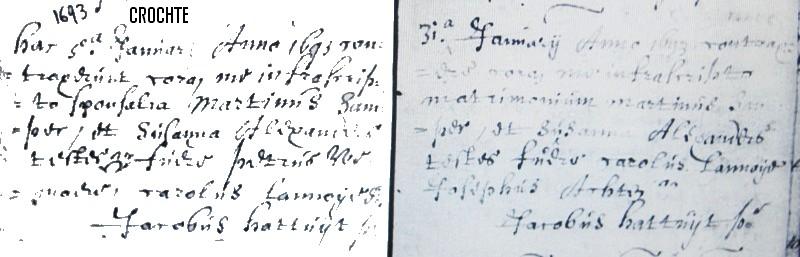 1693 CROCHTE
hac 5.a Januar: Anno 1693 con:
= traxerunt coram me infrascrip:
= to sponsalia Martinus Sam
= per, et Susanna Alexanders
testes fuere petrus
carolus Lannoye
Jacobus hattuyt p
31.a Januarij Anno 1693 contrax:
= ere coram me infrascripto
matrimonium martinus Sam
= per, et Susanna Alexanders
testes fuere carolus Lannoye
Josephus
Jacobus hattuyt p